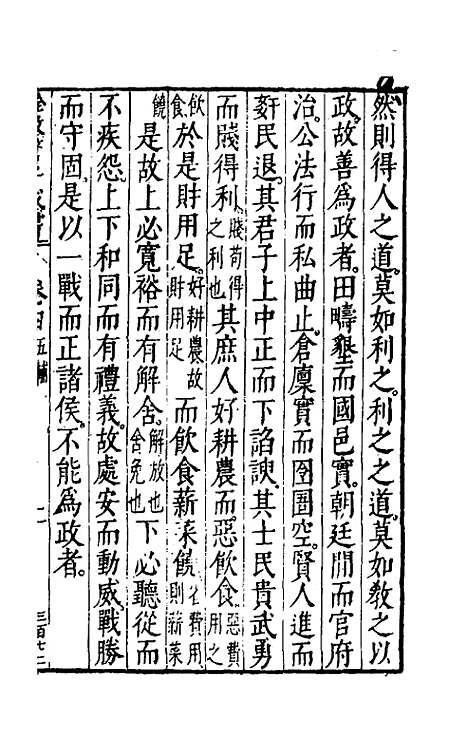 然則得人之道。莫如利之。利之之道。莫如教之以
政。故善爲政者。田疇墾而國邑實。朝廷閒而官府
治。公法行而私曲止。倉廩實而囹圄空。賢人進而
姧民退。其君子上中正而下諂諛。其士民貴武勇
而賤得利。賤苟得之利也其庶人好耕農而惡飲食。惡費用之
飲食於是財用足。好耕農故財用足而飲食薪菜饒。省費用則薪菜
饒是故上必寬裕而有解舍。解放也舍免也下必聽從而
不疾怨。上下和同而有禮義。故處安而動威。戰勝
而守固。是以一戰而正諸侯。不能爲政者。
卷四 五輔